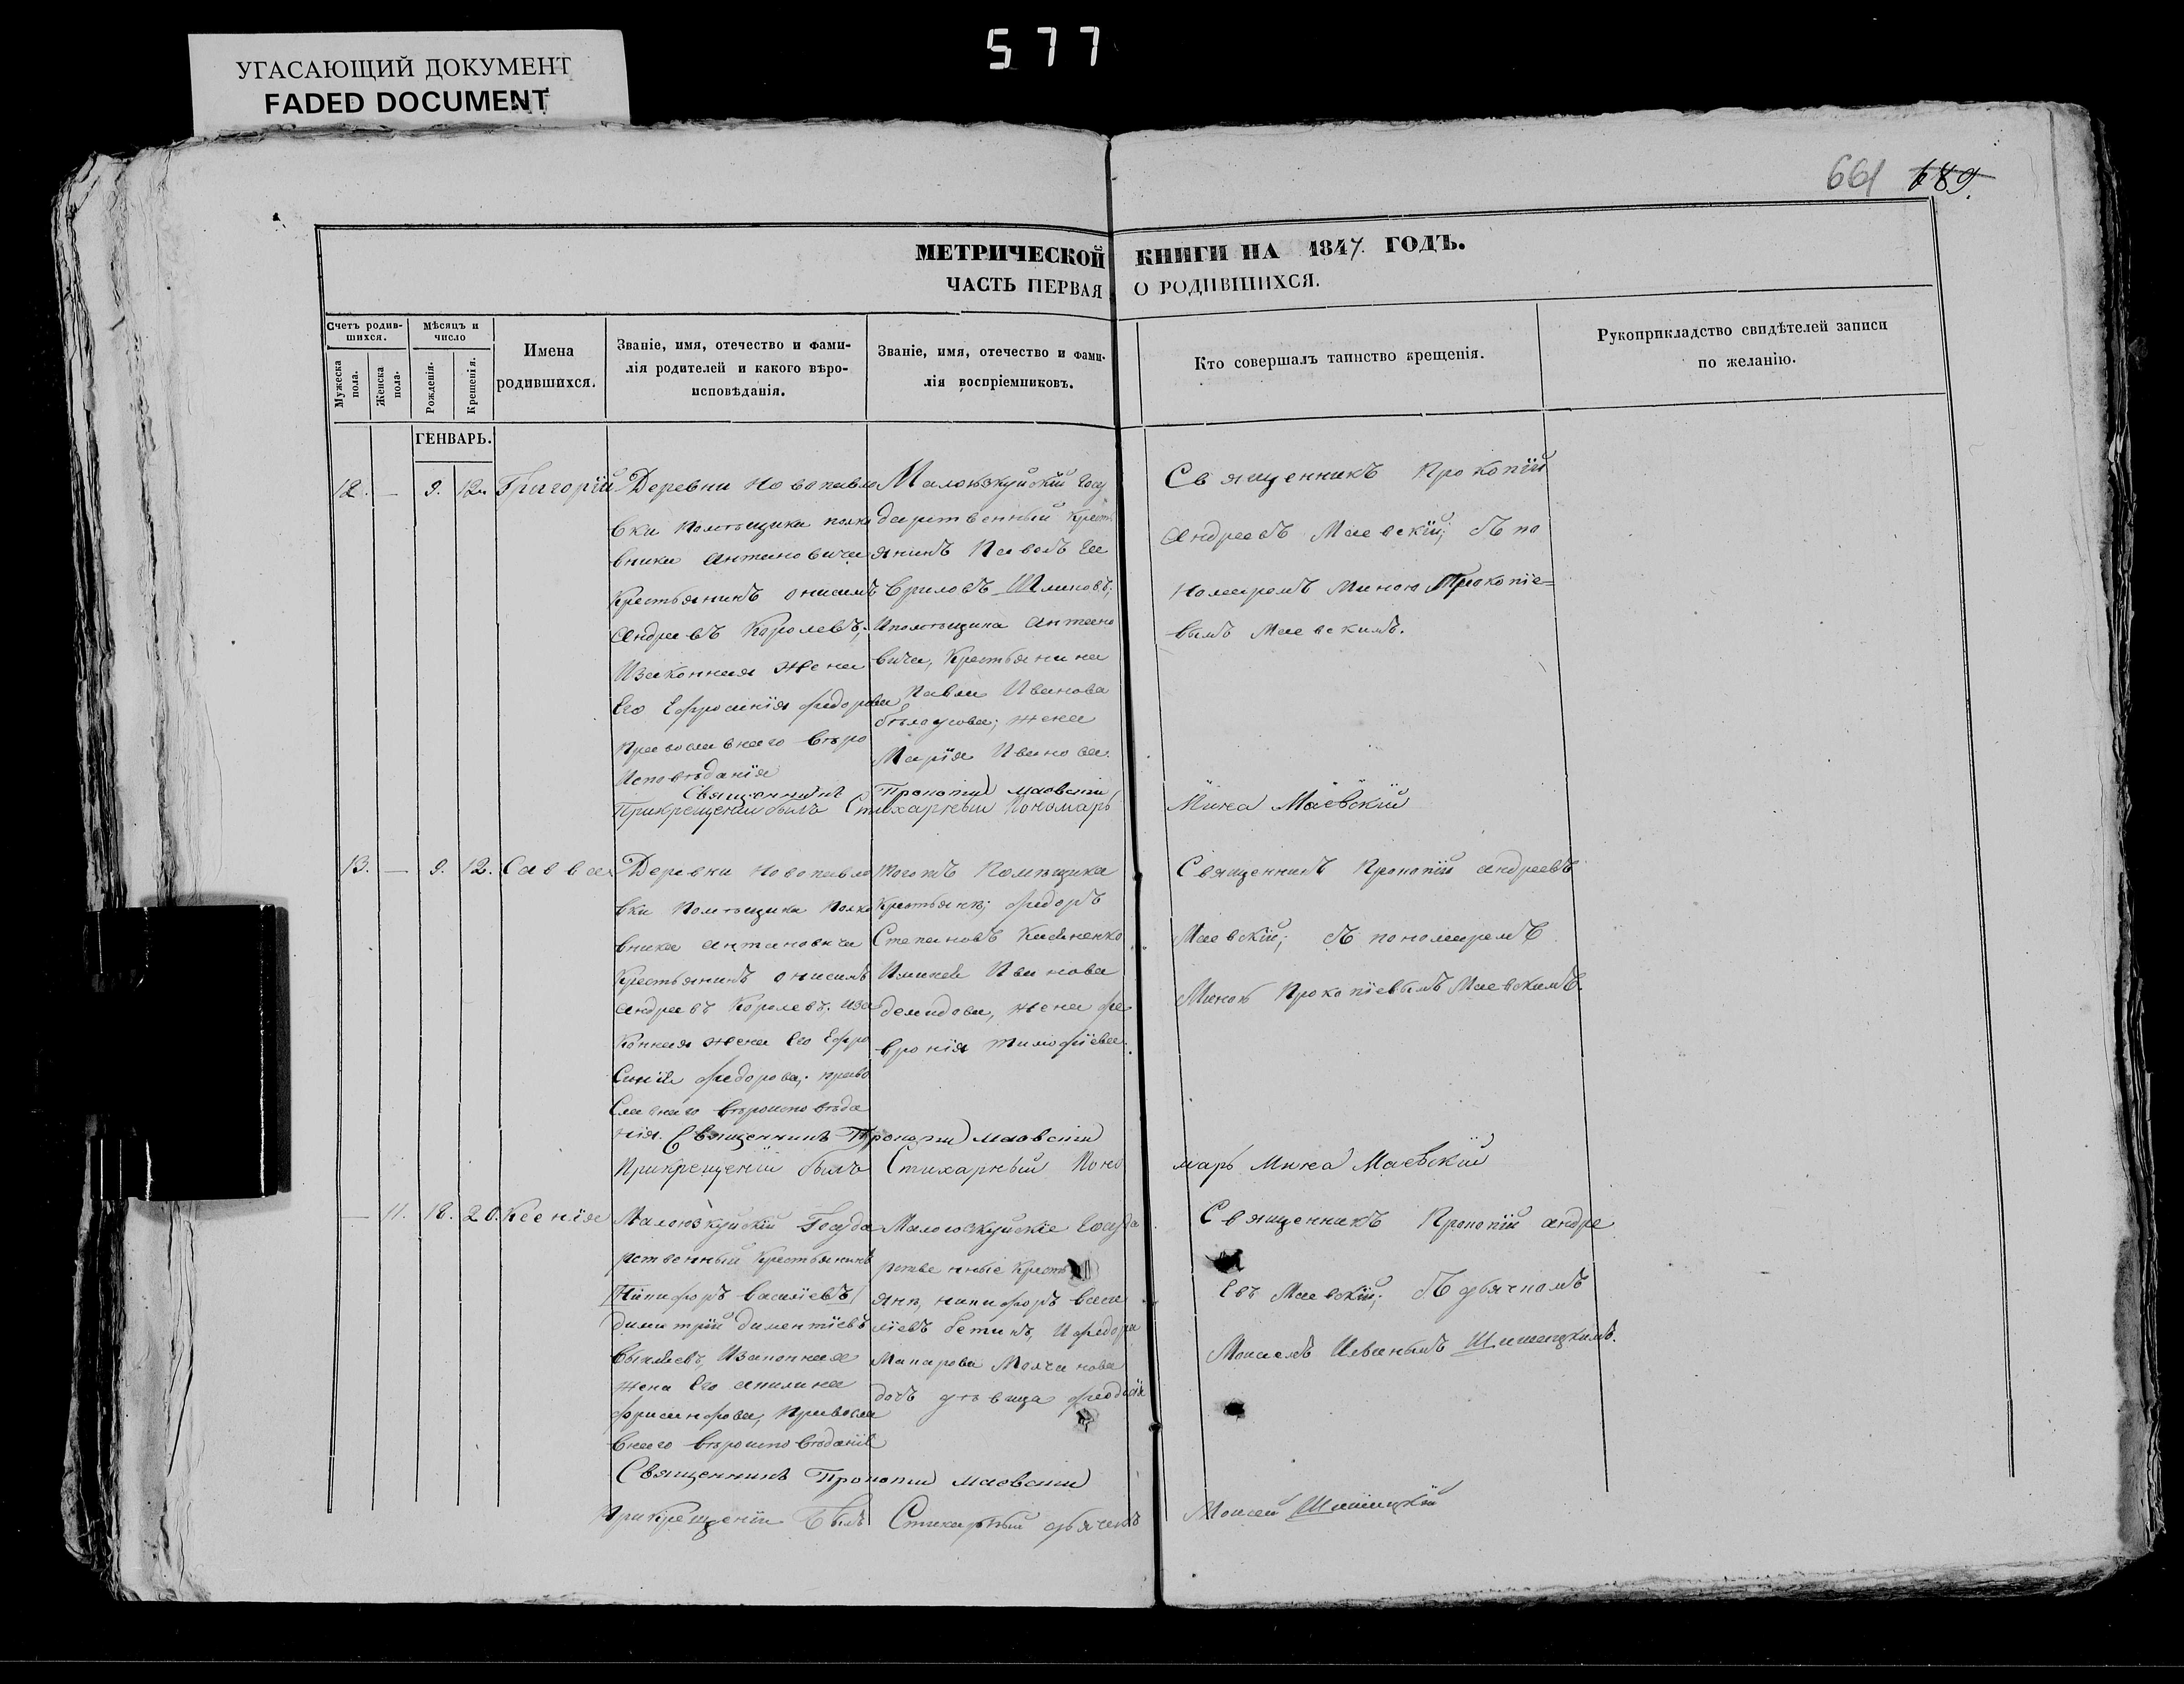 577
УГАСАЮЩИЙ ДОКУМЕНТ
FADED DOCUMENT
661 689.
МЕТРИЧЕСКОЙ КНИГИ НА 1847. ГОДЪ.
ЧАСТЬ ПЕРВАЯ О РОДИВШИХСЯ.
Счетъ родив-
шихся.
Мужеска
пола.
Женска
пола.
Мѣсяцъ и
число
Рожденія.
Крещенія.
Имена
родившихся.
Званіе, имя, отечество и фами-
лія родителей и какого вѣро-
исповѣданія.
Званіе, имя, отечество и фами-
лія воспріемниковъ.
Кто совершалъ таинство крещенія.
Рукоприкладство свидѣтелей записи
по желанію.
ГЕНВАРЬ.
12. — 9. 12. Григорій
Деревни Новопавло
вки Помѣщика полко
вника Антановича
Крестьянинъ Онисимъ
Андреевъ Королевъ;
Изаконная жена
Его Ефросинія федорова
Православнаго вѣро
Исповѣданія
Малоюзкуйскій Госу
дарственный Крест
янинъ Павелъ Га
вриловъ
Ипомѣщика Антано
вича, Крестьянина
Павла Иванова
бѣлоусова; жена
Марія Иванова.
Священникъ Прокопій
Андреевъ Маевскій; Съ по
номаремъ Миною Прокопіе=
вымъ Маевскимъ.
Священникъ Прокопій Маевскій
Прикрещеніи былъ Стихарный Пономарь Мина Маевскій
13. — 9. 12. Савва
Деревни Новопавло
вки Помѣщика Полко
вника Антановича
Крестьянинъ Онисимъ
Андреевъ Королевъ. Иза
конная жена Его Ефро
синія федорова; право
славнаго вѣроисповѣда
нія.
тогожъ Помѣщика
Крестьяне; федоръ
Степановъ
Иванова
демидова, жена фе
вронія тимофіева.
Священникъ Прокопій Андреевъ
Маевскій; Съ пономаремъ
Миною Прокопіевымъ Маевскимъ.
Священникъ Прокопій Маевскій
Прикрещеніи былъ Стихарный Поно
марь Мина Маевскій
— 11. 18. 20. Ксенія
Малоюзкуйскій Госуда
рственный Крестьянинъ
Никифоръ Василіевъ
димитрій диментіевъ
Изаконная
жена Его
Правосла
внаго вѣроисповѣданія
Малоюзкуйскіе Госуда
рственные Кресть
яне, никифоръ Васи
ліевъ Ифедора
Макарова Молчанова
дочь дѣвица феодосія
Священникъ Прокопій Андре
евъ Маевскій; Съ дьячкомъ
Моисеемъ Ивановымъ Шишацкимъ.
Священникъ Прокопій Маевскій
Прикрещеніи былъ Стихарный дьячекъ
Моисей Шишацкій